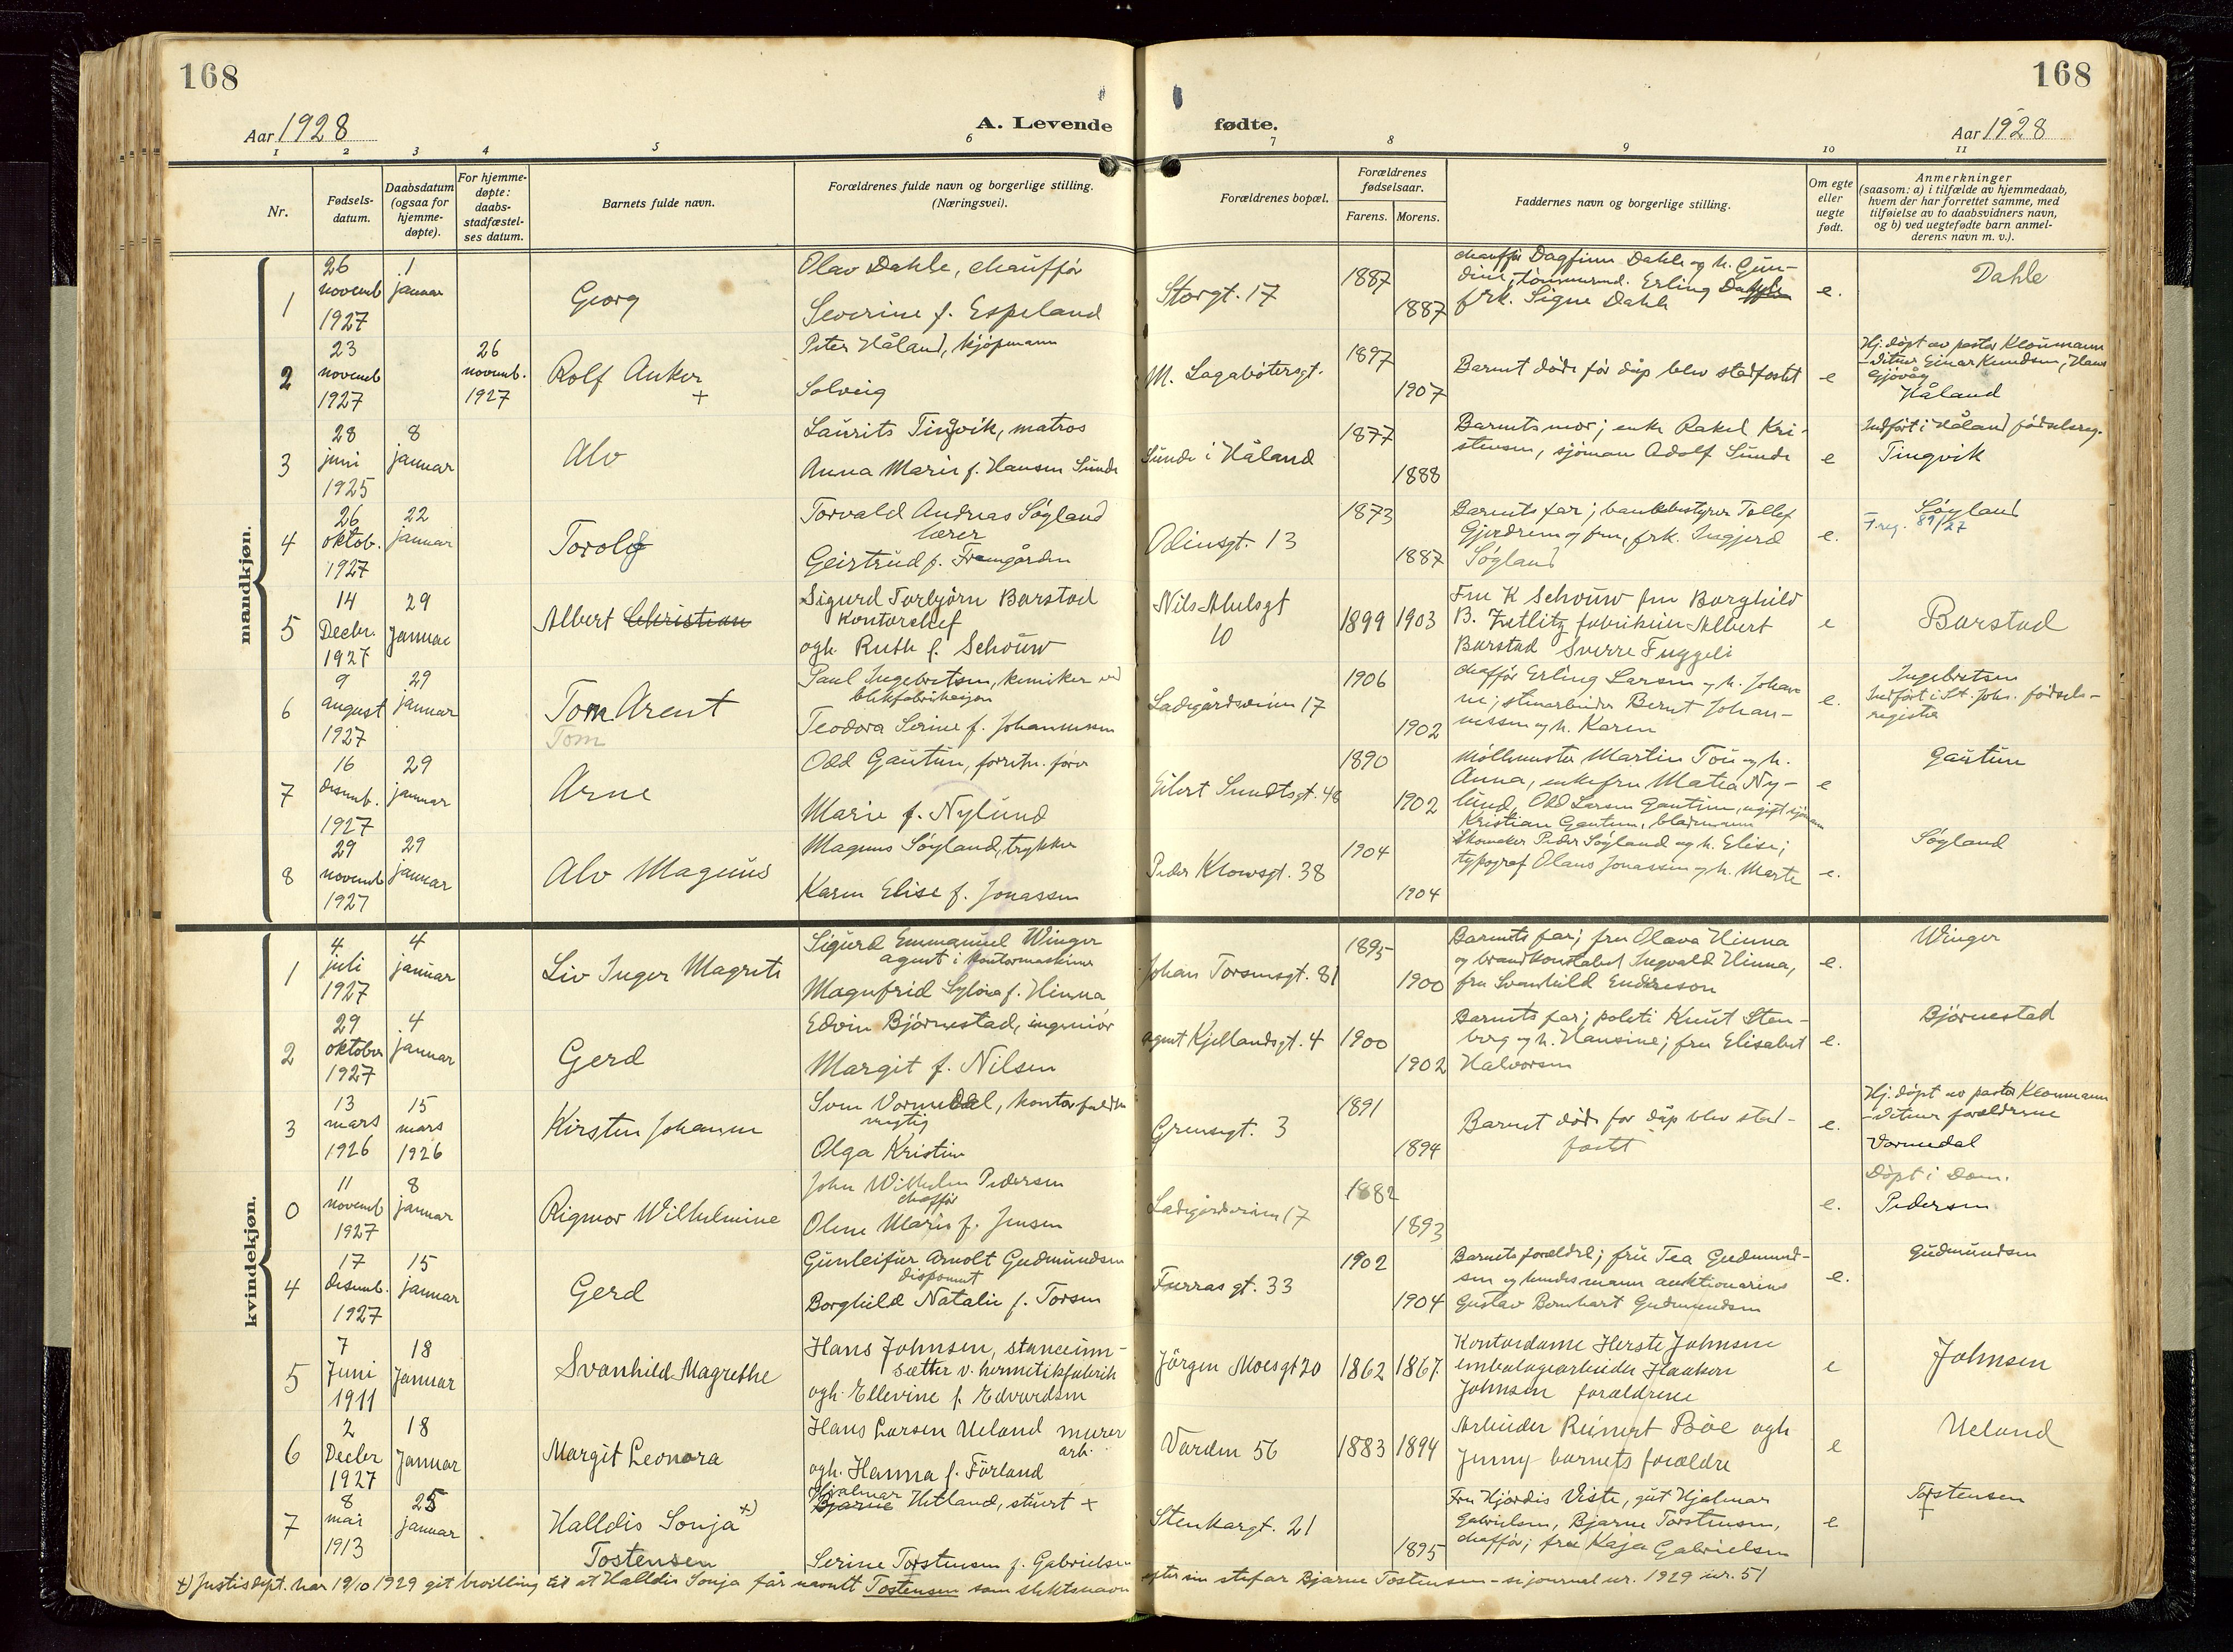 168
168
Aar 1928
A. Levende
fødte.
Aar 1928
1 2 3 4 5 6 7 8 9 10 11
Nr.
Fødsels-
datum.
Daabsdatum
(ogsaa for
hjemme-
døpte).
For hjemme-
døpte:
daabs-
stadfæstel-
ses datum.
Barnets fulde navn.
Forældrenes fulde navn og borgerlige stilling.
(Næringsvei).
Forældrenes bopæl.
Forældrenes
fødselsaar.
Farens. Morens.
Faddernes navn og borgerlige stilling.
Om egte
eller
uegte
født.
Anmerkninger
(saasom: a) i tilfælde av hjemmedaab,
hvem der har forrettet samme, med
tilføielse av to daabsvidners navn,
og b) ved uegtefødte barn anmel-
derens navn m. v.).
mandkjøn.
1
26
novemb
1927
1
januar
Georg
Olav Dahle, chauffør
Severine f. Espeland
Storgt. 17
1887
1887
chauffør Dagfinn Dahle og h. Gun-
dine, tømmermd. Erling Dahle
frk. Signe Dahle
e.
Dahle
2
23
novemb
1927
26
novemb.
1927
Rolf Anker
+
Peter Håland, kjøpmann
Solveig
M. Lagabøtersgt.
1897
1907
Barnet døde før dåp blev stadfæstet
e
Hj. døpt av pastor Kloumann
- vitner Einar Knudsen, Hans
Gjøvåg
Håland
3
28
juni
1925
8
januar
Alv
Laurits Tingvik, matros
Anna Marie f. Hansen Sunde
Sunde i Håland
1877
1888
Barnets mor; enke Rakel Kri-
stensen, sjøman Adolf Sunde
e
Indført i Håland fødselsreg.
Tingvik
4
26
oktob.
1927
22
januar
Torolf
Torvald Andreas Søyland
lærer
Geirtrud f. Fremgården
Odinsgt. 13
1873
1887
Barnets far; bankbestyrer Tollef
Gjerdrem og fru, frk. Ingjerd
Søyland
e.
Søyland
F.reg. 89/27
5
14
Decbr.
1927
29
Januar
Albert Christian
Sigurd Torbjørn Barstad
Kontorchef
ogh. Ruth f. Schouw
Nils Abelsgt
10
1899 1903
Fru K Schouw fru Borghild
B. Zetlitz fabrikeier Albert
Barstad Sverre Fuggeli
e
Barstad
6
9
august
1927
29
januar
Tom Arent
Tom
Paul Ingebretsen, kemiker ved
blikfabrikeijen
Teodora Serine f. Johannessen
Ladegårdsveien 17
1906
1902
chaffør Erling Larsen og h. Johan-
ne; stenarbeider Bernt Johan-
nessen og h. Karen
e.
Ingebretsen
Indført i St. Joh. fødsels-
register
7
16
desemb.
1927
29
januar
Arne
Odd Gautun, forretn. fører
Marie f. Nylund
Eilert Sundtsgt. 48
1890
1902
Møllemester Martin Tou og h.
Anna, enkefru Matea Ny-
lund, Odd Larsen Gautun, ugift sjømann
Kristian Gautun, bladmann
e
Gautun
8
29
novemb
1927
29
januar
Alv Magnus
Magnus Søyland, trykker
Karen Elise f. Jonassen
Peder Klowsgt. 38
1904
1904
Skomaker Peder Søyland og h. Elise;
typograf Olaus Jonassen og h. Marte
e.
Søyland
kvindekjøn.
1
4
juli
1927
4
januar
Liv Inger Magrete
Sigurd Emmanuel Winger
agent i kontormaskiner
Magnfrid Sylvia f. Hinna
Johan Torsensgt. 81
1895
1900
Barnets far; fru Olava Hinna
og brandkonstabel Ingvald Hinna,
fru Svanhild Endreson
e.
Winger
2
29
oktober
1927
4
januar
Gerd
Edvin Bjørnestad, ingeniør
Margit f. Nilsen
agent Kjellandsgt. 4
1900
1902
Barnets far; politi Knut Sten-
berg og h. Hansine; fru Elisabet
Halvorsen
e.
Bjørnestad
3
13
mars
1926
15
mars
1926
Kirsten Johanne
Sven Vormedal, kontorfuldm
megtig
Olga Kristine
Grensegt. 3
1891
1894
Barnet døde før dåp blev stad-
festet
e.
Hj. døpt av pastor Kloumann
- vitner forældrene
Vormedal
0
11
novemb
1927
8
januar
Rigmor Wilhelmine
John Wilhelm Pedersen
chaffør
Oline Marie f. Jensen
Ladegårdsveien 17
1882
1893
e.
Døpt i Dom.
Pedersen
4
17
desemb.
1927
15
januar
Gerd
Gunleifur Arnolt Gudmundsen
disponent
Borghild Natalie f. Torsen
Furras gt. 33
1902
1904
Barnets forældre; fru Tea Gudmund-
sen og lensmann auktionarius
Gustav Bernhart Gudmundsen
e.
Gudmundsen
5
7
Juni
1911
18
Januar
Svanhild Magrethe
Hans Johnsen, stanceinn-
sætter v. hermetikfabrik
ogh. Ellevine f. Edvardsen
Jørgen Moesgt 20
1862 1867.
Kontordame Herste Johnsen
embalagearbeider Haakon
Johnsen forældrene
e
Johnsen
6
2
Decbr
1927
18
Januar
Margit Leonora
Hans Larsen Ueland murer
arb.
ogh. Hanna f. Førland
Varden 56
1883 1894
Arbeider Reinert Bøe ogh
Jenny barnets forældre
e
Ueland
7
8
mai
1913
25
januar
Halldis Sonja +)
Tostensen
Hjalmar
Bjarne Hetland, stuert +
Serine Torstensen f. Gabrielsen
Stenkargt. 21
1895
Fru Hjørdis Viste, gut Hjalmar
Gabrielsen, Bjarne Torstensen,
chaffør; fru Kaja Gabrielsen
e
Torstensen
+) Justisdept. har 19/10 1929 git bevilling til at Halldis Sonja får navnet Tostensen som slektsnavn efter sin stefar Bjarne Tostensen - se journal nr. 1929 nr. 51